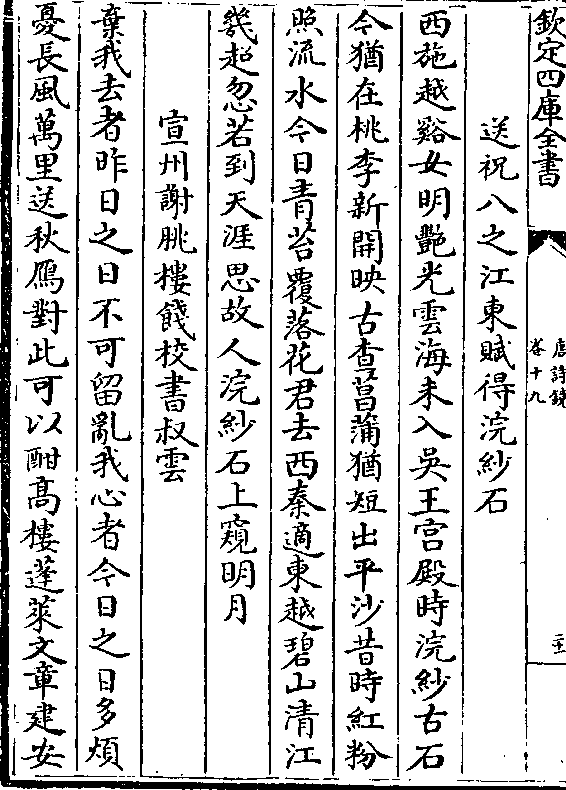 欽定四庫全書
唐詩鏡
卷十九
送祝八之江東賦得浣紗石
西施越谿女明艷光雲海未入吳王宮殿時浣紗古石
今猶在桃李新開映古查菖蒲猶短出平沙昔時紅粉
照流水今日青苔覆落花君去西秦適東越碧山清江
幾超忽若到天涯思故人浣紗石上窺明月
宣州謝朓樓餞校書叔雲
棄我去者昨日之日不可留亂我心者今日之日多煩
憂長風萬里送秋鴈對此可以酣高樓蓬萊文章建安